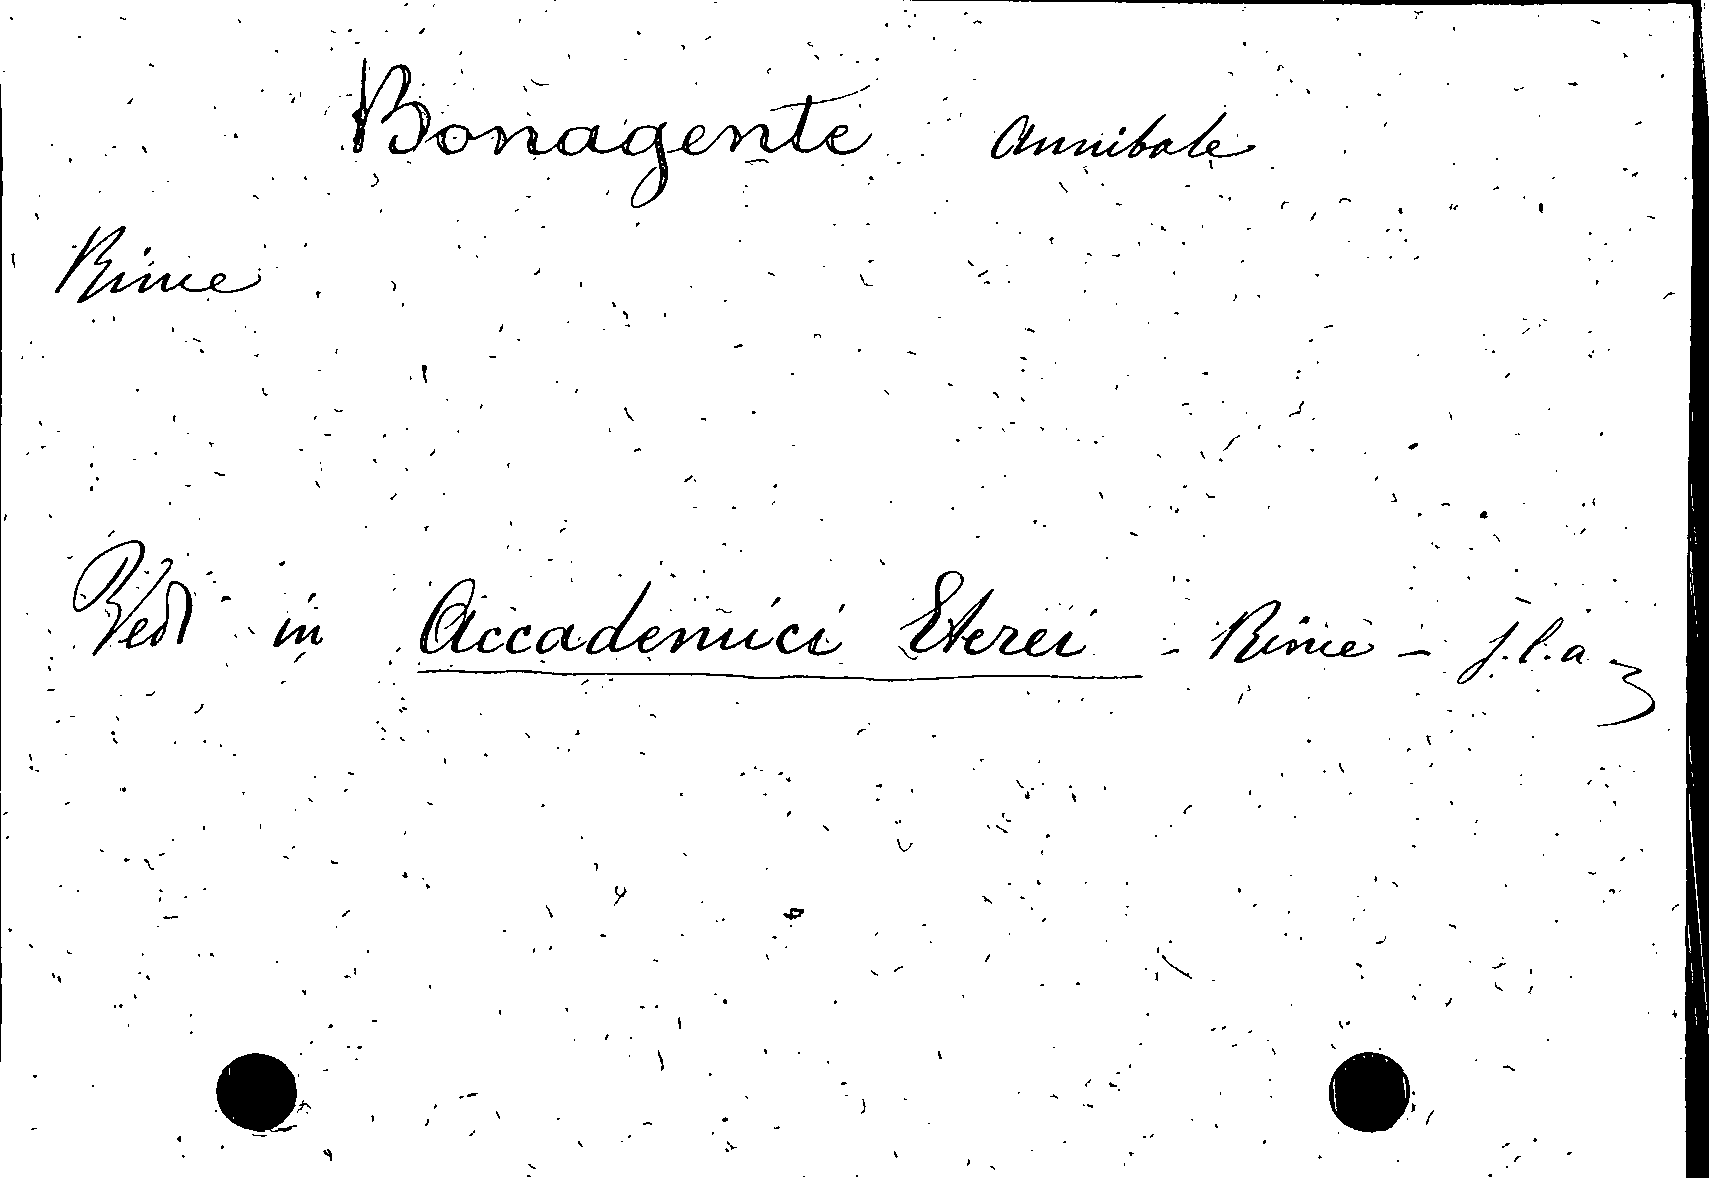 Bonagente Annibale
Rime
Vedi in Accademici Eterei - Rime - s.l.a